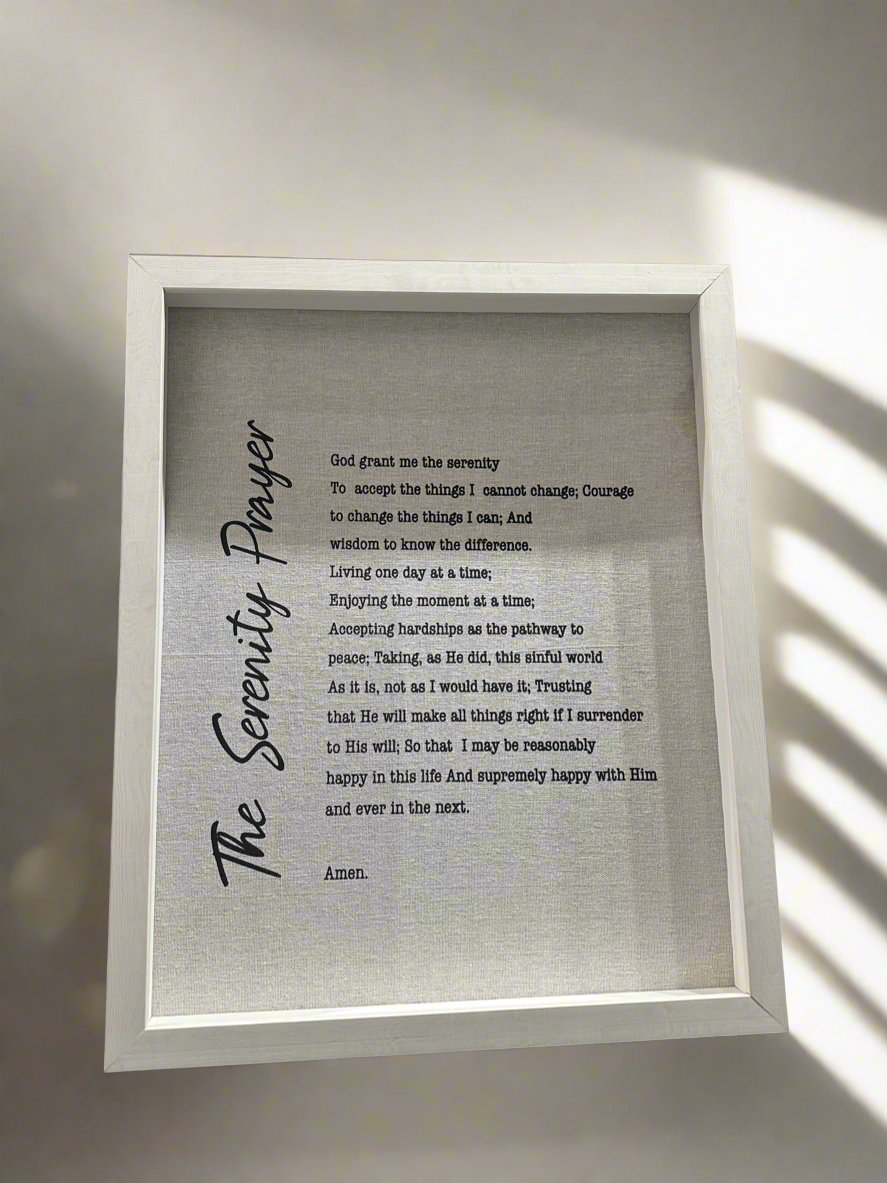 The Serenity Prayer
God grant me the serenity
To accept the things I cannot change; Courage
to change the things I can; And
wisdom to know the difference.
Living one day at a time;
Enjoying the moment at a time;
Accepting hardships as the pathway to
peace; Taking, as He did, this sinful world
As it is, not as I would have it; Trusting
that He will make all things right if I surrender
to His will; So that I may be reasonably
happy in this life And supremely happy with Him
and ever in the next.
Amen.